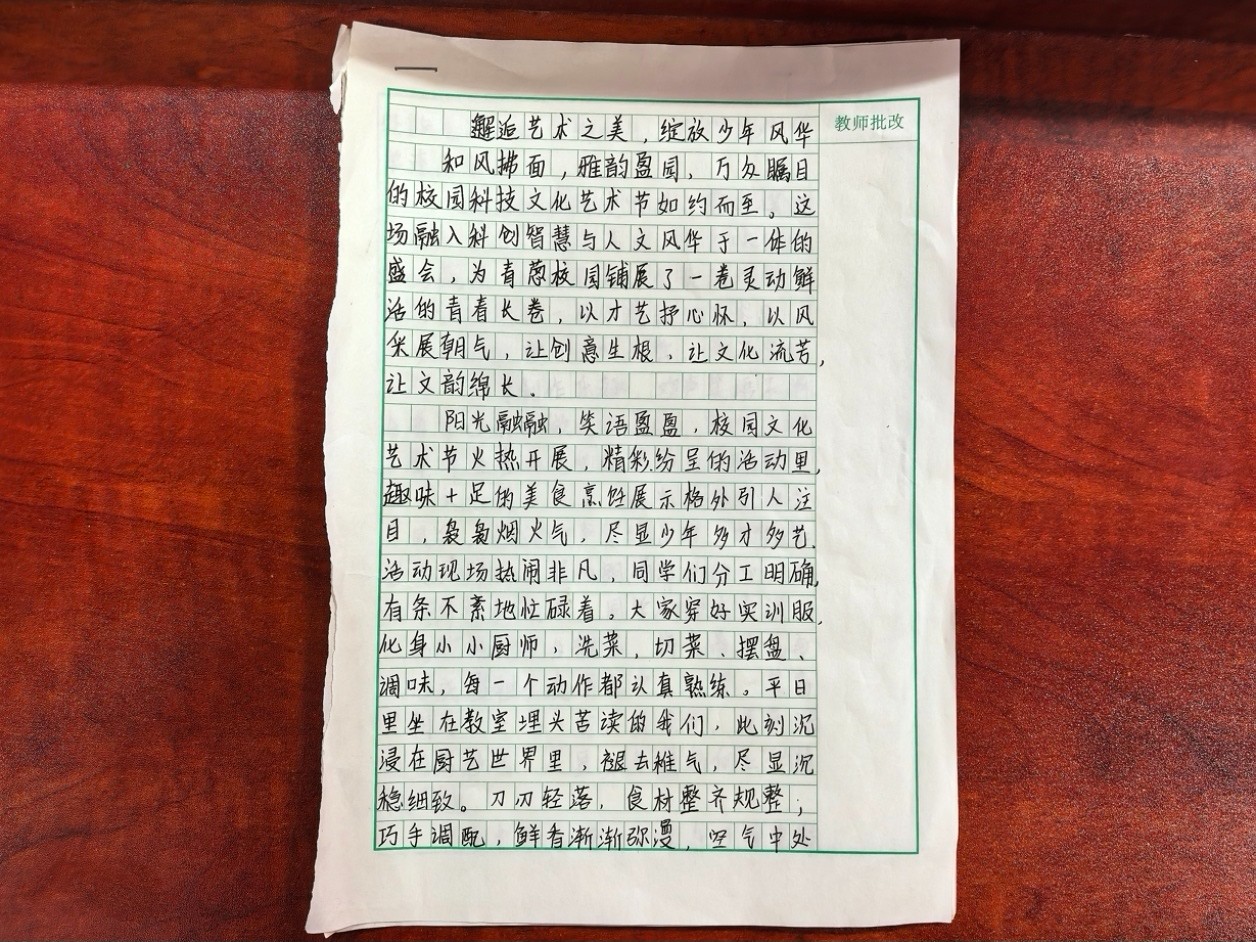 教师批改
邂逅艺术之美，绽放少年风华
和风拂面，雅韵盈园，万众瞩目
的校园科技文化艺术节如约而至。这
场融入科创智慧与人文风华于一体的
盛会，为青葱校园铺展了一卷灵动鲜
活的青春长卷，以才艺抒心怀，以风
采展朝气，让创意生根，让文化流芳，
让文韵绵长。
阳光融融，笑语盈盈，校园文化
艺术节火热开展，精彩纷呈的活动里，
趣味十足的美食烹饪展示格外引人注
目，袅袅烟火气，尽显少年多才多艺。
活动现场热闹非凡，同学们分工明确，
有条不紊地忙碌着。大家穿好实训服，
化身小小厨师，洗菜，切菜、摆盘、
调味，每一个动作都认真熟练。平日
里坐在教室埋头苦读的我们，此刻沉
浸在厨艺世界里，褪去稚气，尽显沉
稳细致。刀刃轻落，食材整齐规整；
巧手调配，鲜香渐渐弥漫，空气中处